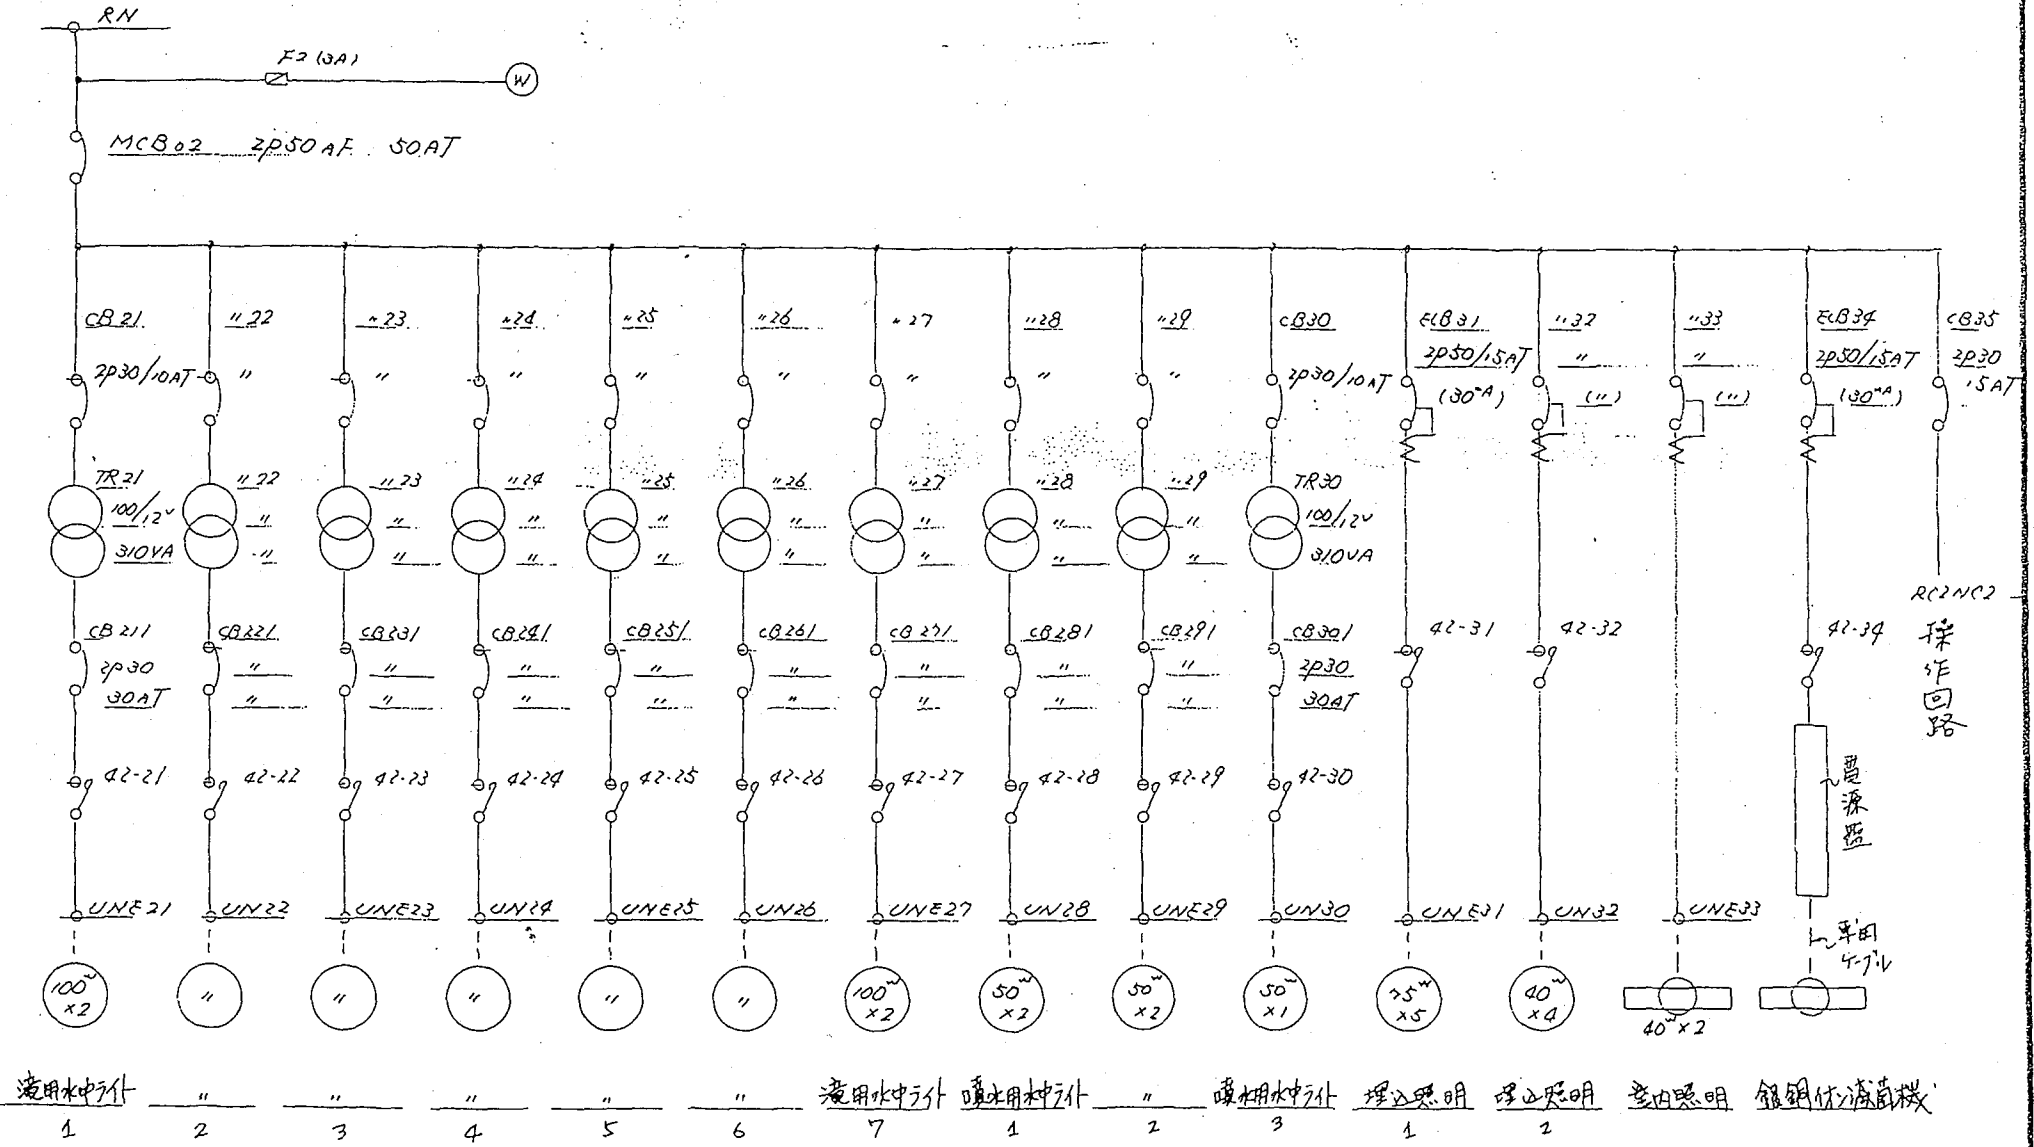 RN
F2 (3A)
W
MCB02 2P50AF 50AT
CB21 〃22 〃23 〃24 〃25 〃26 〃27 〃28 〃29 CB30 ELB31 〃32 〃33 ELB34 CB35
2P30/10AT 〃 〃 〃 〃 〃 〃 〃 〃 2P30/10AT 2P50/15AT 〃 〃 2P50/15AT 2P30
(30mA) (〃) (〃) (30mA) 15AT
TR21 〃22 〃23 〃24 〃25 〃26 〃27 〃28 〃29 TR30
100/12V 〃 〃 〃 〃 〃 〃 〃 〃 100/12V
310VA 〃 〃 〃 〃 〃 〃 〃 〃 310VA
RC2NC2
操作回路
CB211 CB221 CB231 CB241 CB251 CB261 CB271 CB281 CB291 CB301 42-31 42-32 42-34
2P30 〃 〃 〃 〃 〃 〃 〃 〃 2P30
30AT 〃 〃 〃 〃 〃 〃 〃 〃 30AT
42-21 42-22 42-23 42-24 42-25 42-26 42-27 42-28 42-29 42-30
電源盤
UNE21 UN22 UNE23 UN24 UNE25 UN26 UNE27 UN28 UNE29 UN30 UNE31 UN32 UNE33
専用
ケーブル
100W 〃 〃 〃 〃 〃 100W 50W 50W 50W 75W 40W
×2 ×2 ×2 ×2 ×1 ×5 ×4 40W×2
滝用水中ライト 〃 〃 〃 〃 〃 滝用水中ライト 噴水用水中ライト 〃 噴水用水中ライト 埋込照明 埋込照明 室内照明 銀銅イオン滅菌機
1 2 3 4 5 6 7 1 2 3 1 2